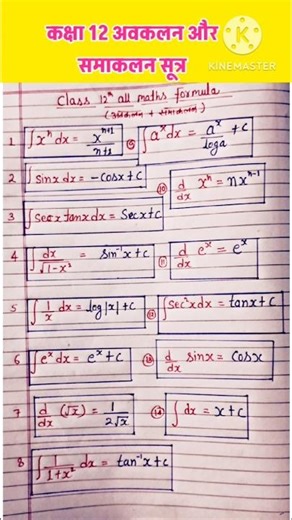 कक्षा 12 अवकलन और
समाकलन सूत्र
KINEMASTER
Class 12th all maths formula
(अवकलन + समाकलन)
1 ∫xⁿ dx = xⁿ⁺¹/n+1
⑨ ∫aˣ dx = aˣ/loga + c
2 ∫sinx dx = -cosx + c
⑩ d/dx xⁿ = nxⁿ⁻¹
3 ∫secx tanx dx = secx + c
4 ∫dx/√1-x² = sin⁻¹x + c
⑪ d/dx eˣ = eˣ
5 ∫1/x dx = log|x| + c
⑫ ∫sec²x dx = tanx + c
6 ∫eˣ dx = eˣ + c
⑬ d/dx sinx = cosx
7 d/dx (√x) = 1/2√x
⑭ ∫dx = x + c
8 ∫1/1+x² dx = tan⁻¹x + c